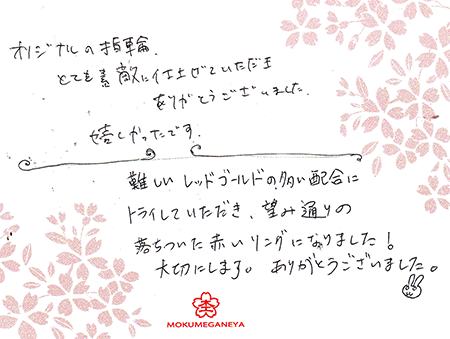 オリジナルの指輪、
とても素敵に仕上げていただき
ありがとうございました。
嬉しかったです。
難しいレッドゴールドの多い配合に
トライしていただき、望み通りの
落ちついた赤いリングになりました!
大切にします。ありがとうございました。
MOKUMEGANEYA